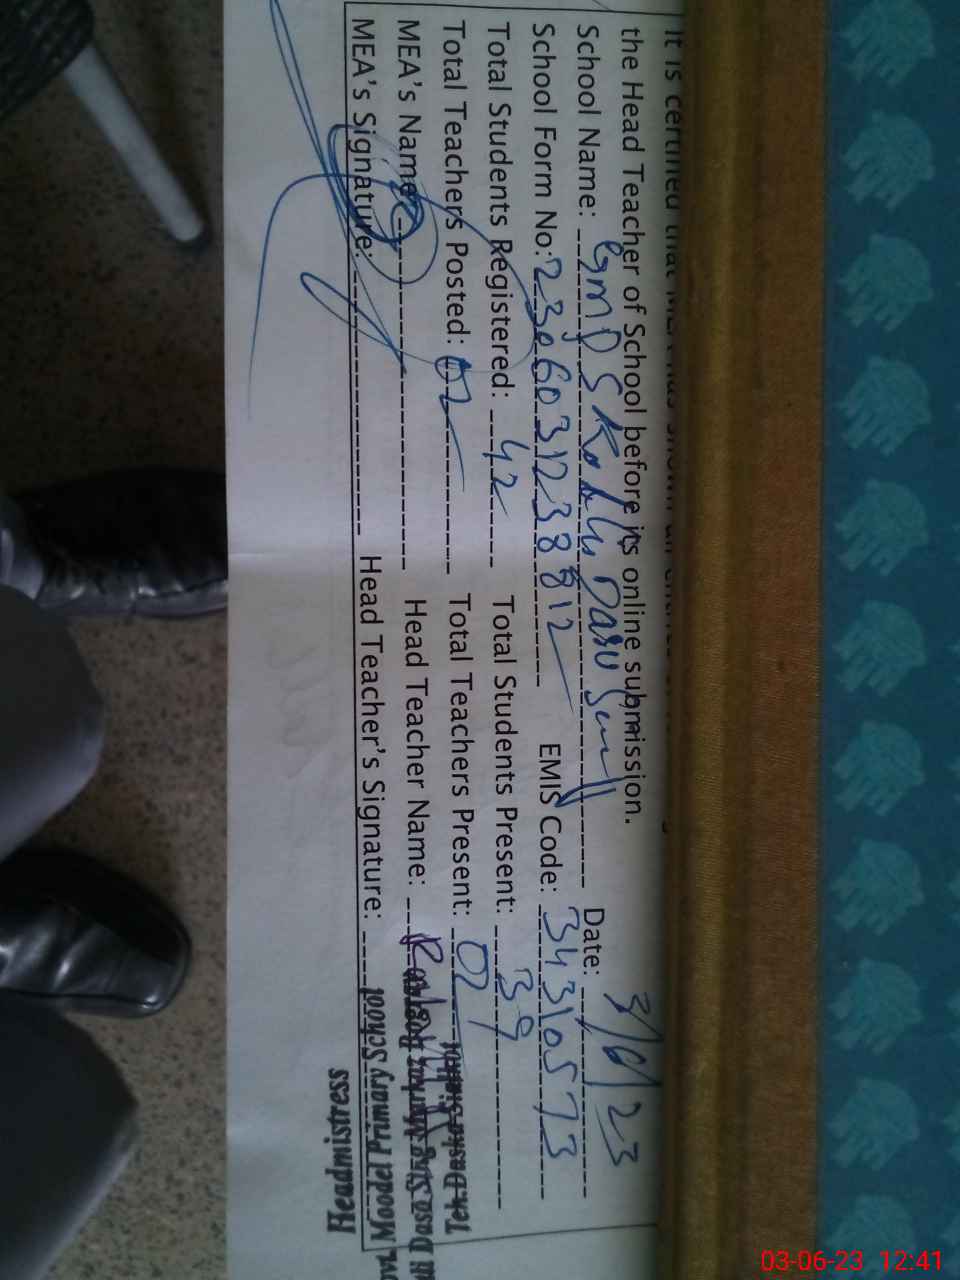 It is certified that MEA has shown all entries
the Head Teacher of School before its online submission.
School Name: GMPS Kotli Daso Singh Date: 3/6/23
School Form No: 2306031238812 EMIS Code: 34310573
Total Students Registered: 42 Total Students Present: 39
Total Teachers Posted: 02 Total Teachers Present: 02
MEA's Name: Head Teacher Name:
MEA's Signature: Head Teacher's Signature:
Headmistress
Govt. Model Primary School
Daso Sing
Teh Daska Sialkot
03-06-23 12:41